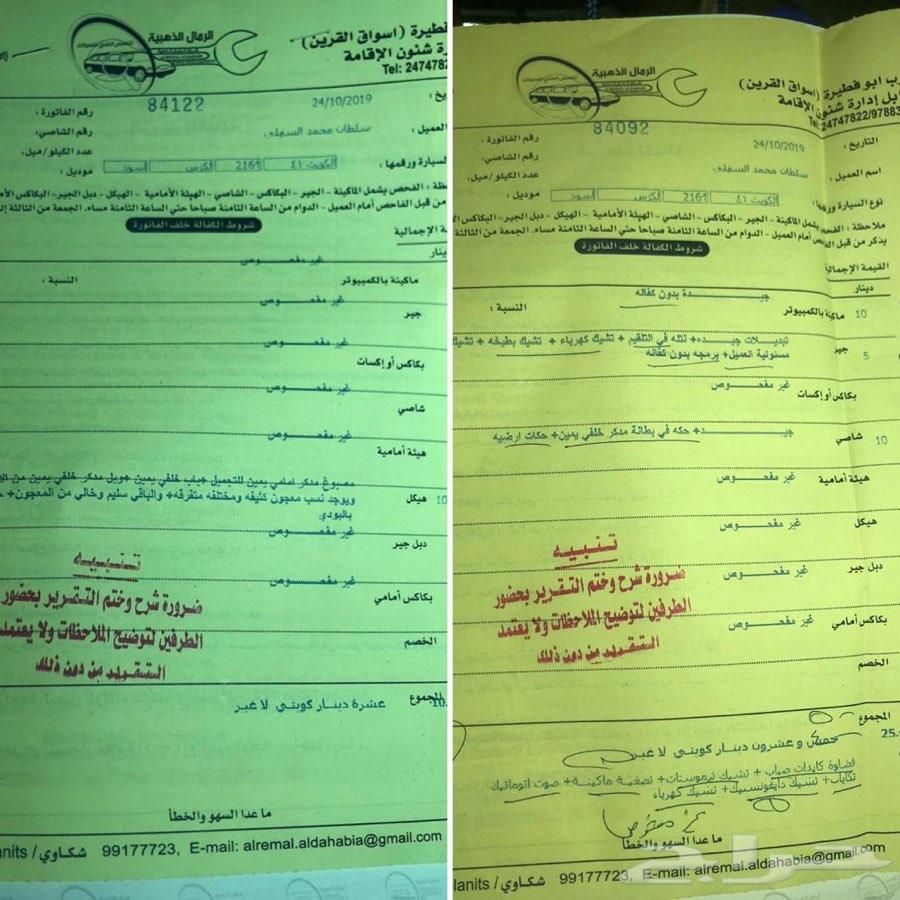 فطيرة (اسواق القرين)
شئون الإقامة
Tel: 247478
الرمال الذهبية
رقم الفاتورة : 84122
24/10/2019
العميل :
سلطان محمد السهلي
رقم الشاصي :
عدد الكيلو/ميل :
السيارة ورقمها :
الكويت ٤١ 2161 لكزس اسود
موديل :
الفحص يشمل الماكينة - الجير - البكاكس - الشاصي - الهيئة الأمامية - الهيكل - دبل الجير - البكاكس
من قبل الفاحص أمام العميل - الدوام من الساعة الثامنة صباحا حتى الساعة الثامنة مساء. الجمعة من الثالثة
شروط الكفالة خلف الفاتورة
الإجمالية
غير مفحوص
ماكينة بالكمبيوتر
النسبة :
غير مفحوص
جير
غير مفحوص
بكاكس أو إكسات
غير مفحوص
شاصي
غير مفحوص
هيئة أمامية
مصبوغ مدكر امامي يمين للتجميل + باب خلفي يمين +ويل مدكر خلفي يمين من
ويوجد نسب معجون كثيفه ومختلفه متفرقه+ والباقي سليم وخالي من المعجون+
بالبودي
هيكل
10
غير مفحوص
دبل جير
غير مفحوص
بكاكس أمامي
الخصم
تنبيه
ضرورة شرح وختم التقرير بحضور
الطرفين لتوضيح الملاحظات ولا يعتمد
التقرير من دون ذلك
المجموع
10.
عشرة دينار كويتي لا غير
ما عدا السهو والخطأ
anits / شكاوي 99177723, E-mail: alremal.aldahabia@gmail.com
رب ابو فطيرة (اسواق القرين)
ابل إدارة شئون الإقامة
24747822/97883
الرمال الذهبية
التاريخ :
24/10/2019
رقم الفاتورة : 84092
اسم العميل :
سلطان محمد السهلي
رقم الشاصي :
عدد الكيلو/ميل :
نوع السيارة ورقمها :
الكويت ٤١ 2161 لكزس اسود
موديل :
ملاحظة : الفحص يشمل الماكينة - الجير - البكاكس - الشاصي - الهيئة الأمامية - الهيكل - دبل الجير - البكاكس
يذكر من قبل الفاحص أمام العميل - الدوام من الساعة الثامنة صباحا حتى الساعة الثامنة مساء. الجمعة من الثالثة
شروط الكفالة خلف الفاتورة
القيمة الإجمالية
دينار
جيدة بدون كفاله
10
ماكينة بالكمبيوتر
النسبة :
تبديلات جيد + نتله في التلقيم + تشيك كهرباء + تشيك بطيخه + تشيك
مسئولية العميل+ برمجه بدون كفاله
جير
5
غير مفحوص
بكاكس أو إكسات
جيد + حكه في بطانة مدكر خلفي يمين+ حكات ارضيه
شاصي
10
غير مفحوص
هيئة أمامية
غير مفحوص
هيكل
غير مفحوص
دبل جير
غير مفحوص
بكاكس أمامي
الخصم
تنبيه
ضرورة شرح وختم التقرير بحضور
الطرفين لتوضيح الملاحظات ولا يعتمد
التقرير من دون ذلك
المجموع
25.
خمس و عشرون دينار كويتي لا غير
تشيك ثرموستات + تصفية ماكينة + صوت اتوماتيك
تكايات + تشيك دايفونسيك + تشيك كهرباء
ما عدا السهو والخطأ
lanits / شكاوي 99177723, E-mail: alremal.aldahabia@gmail.com
حراج